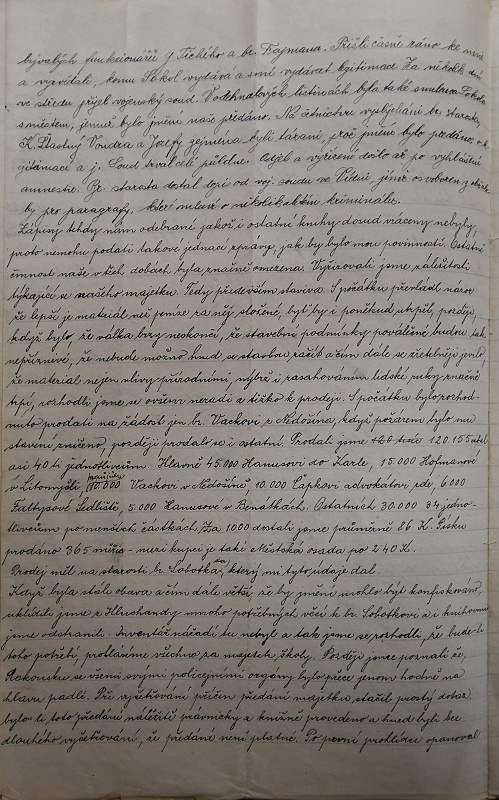 bývalých funkcionářů J Tichého a br. Fajmana. Přišli časně ráno ke mně
a vyzvídali, komu Sokol vydává a smí vydávat legitimace. Za několik dní
ve středu přijel vojenský soud. V odhnatových listinách byla také smlouva Sokola
s městem, jemuž bylo jmění naše předáno. Na četnictvu vyslýcháni br. starosta,
K. Šťastný Vondra a Josefy zejména byli tázáni, proč jmění bylo předáno,
a j. Soud trval celé půldne. Odjel a vyřízení došlo až po vyhlášení
amnestie. Br. starosta dostal dopis od voj. soudu ve Vídni, jímž osvobozen z obžalo-
by pro paragrafy, které mluví o několikaletém kriminále.
Zápisy tehdy nám odebrané jakož i ostatní knihy dosud vráceny nebyly,
proto nemohu podati takové jednací zprávy, jak by bylo mou povinností. Ostatní
činnost naše v těch dobách byla značně omezena. Vyřizovali jsme záležitosti
týkající se našeho majetku. Tedy především staviva. S počátku převládl názor
že lepší je materiál než peníze za něj stržené, byť by i poněkud utrpěl, později,
když bylo, že válka brzy neskončí, že stavební podmínky poválečné budou tak
nepříznivé, že nebude možno hned se stavbou začít a čím dále se zřetelněji jevilo
že materiál nejen vlivy přírodními, nýbrž i zasahováním lidské ruky značně
trpí, rozhodli jsme se ovšem neradi a těžko k prodeji. S počátku bylo rozhod-
nuto prodati na žádost jen br. Vackovi z Nedošína, když požárem bylo mu
stavení zničeno, později prodalo se i ostatní. Prodali jsme tedy 120.155 cihel
asi 40 ti jednotlivcům. Hlavně 45.000 Hanusovi do Karle, 15.000 Hofmanové
v Litomyšli, 10.000 Vackovi v Nedošíně 10.000 Čapkovi advokátovi zde, 6000
Faltysové Sedliště, 5.000 Hanusové v Benátkách. Ostatních 30.000 34 jedno-
tlivcům po menších částkách. Za 1000 dostali jsme průměrně 86 K. Písku
prodáno 365 měřic - mezi kupci je také Městská osada po 2˙40 K.
Prodej měl na starosti br. Lobotka, který mi tyto údaje dal.
Když byla stále obava a čím dále větší, že by jmění mohlo být konfiskováno,
uklidili jsme z Hluchandy mnoho potřebných věcí k br. Lobotkovi a i knihovnu
jsme odstranili. Inventář nářadí tu nebyl a tak jsme se rozhodli, že bude-li
toho potřebí, prohlásíme všechno za majetek školy. Později jsme poznali že,
Rakousku se všemi svými policejními orgány bylo přece jenom hodně na
hlavu padlé. Při vyšetřování příčin předání majetku, stačil prostý dotaz
bylo-li toto předání náležitě právnicky a knižně provedeno a hned byli bez
dlouhého vyšetřování, že předání není platné. Po první prohlídce opanoval